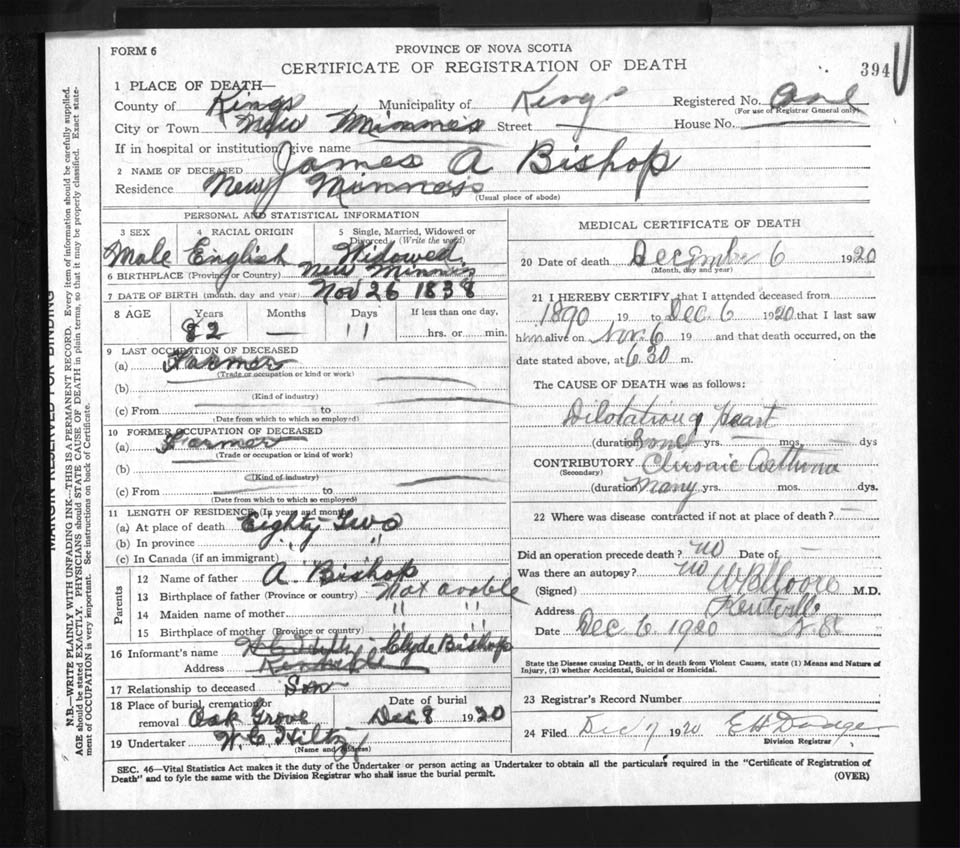 FORM 6
PROVINCE OF NOVA SCOTIA
CERTIFICATE OF REGISTRATION OF DEATH
394
1 PLACE OF DEATH—
County of Kings Municipality of Kings Registered No. One
(For use of Registrar General only)
City or Town New Minnes Street House No.
If in hospital or institution, give name
2 NAME OF DECEASED James A Bishop
Residence New Minness
(Usual place of abode)
PERSONAL AND STATISTICAL INFORMATION
3 SEX 4 RACIAL ORIGIN 5 Single, Married, Widowed or Divorced (Write the word)
Male English Widowed
6 BIRTHPLACE (Province or Country) New Minnis
7 DATE OF BIRTH (month, day and year) Nov 26 1838
8 AGE Years Months Days If less than one day,
82 — 11 hrs. or min.
9 LAST OCCUPATION OF DECEASED
(a) Farmer
(Trade or occupation or kind or work)
(b)
(Kind of industry)
(c) From to
(Date from which to which so employed)
10 FORMER OCCUPATION OF DECEASED
(a) Farmer
(Trade or occupation or kind of work)
(b)
(Kind of industry)
(c) From to
(Date from which to which so employed)
11 LENGTH OF RESIDENCE (In years and months)
(a) At place of death Eighty Two
(b) In province " "
(c) In Canada (if an immigrant)
Parents
12 Name of father A. Bishop
13 Birthplace of father (Province or country) Not avable
14 Maiden name of mother " "
15 Birthplace of mother (Province or country) " "
16 Informant's name Clyde Bishop
Address Kentville
17 Relationship to deceased Son
18 Place of burial, cremation or removal Oak Grove Date of burial Dec 8 1920
19 Undertaker W. C. Hiltz
(Name and address)
MEDICAL CERTIFICATE OF DEATH
20 Date of death December 6 1920
(Month, day and year)
21 I HEREBY CERTIFY, that I attended deceased from
1890 19 to Dec 6 1920 that I last saw
him alive on Nov. 6 19 and that death occurred, on the
date stated above, at 6.30 m.
The CAUSE OF DEATH was as follows:
Dilotation of Heart
(duration) yrs. mos. dys
CONTRIBUTORY Chronic Asthma
(Secondary)
(duration) many yrs. mos. dys.
22 Where was disease contracted if not at place of death?
Did an operation precede death? no Date of —
Was there an autopsy? no
(Signed) W B Moore M.D.
Address Kentville
Date Dec 6 1920 N.S.
State the Disease causing Death, or in death from Violent Causes, state (1) Means and Nature of
Injury, (2) whether Accidental, Suicidal or Homicidal.
23 Registrar's Record Number
24 Filed Dec 7 1920 E H Dodge
Division Registrar
SEC. 46—Vital Statistics Act makes it the duty of the Undertaker or person acting as Undertaker to obtain all the particulars required in the "Certificate of Registration of
Death" and to fyle the same with the Division Registrar who shall issue the burial permit. (OVER)
MARGIN RESERVED FOR BINDING
N.B.—WRITE PLAINLY WITH UNFADING INK—THIS IS A PERMANENT RECORD. Every item of information should be carefully supplied.
AGE should be stated EXACTLY. PHYSICIANS should STATE CAUSE OF DEATH in plain terms, so that it may be properly classified. Exact state-
ment of OCCUPATION is very important. See instructions on back of Certificate.